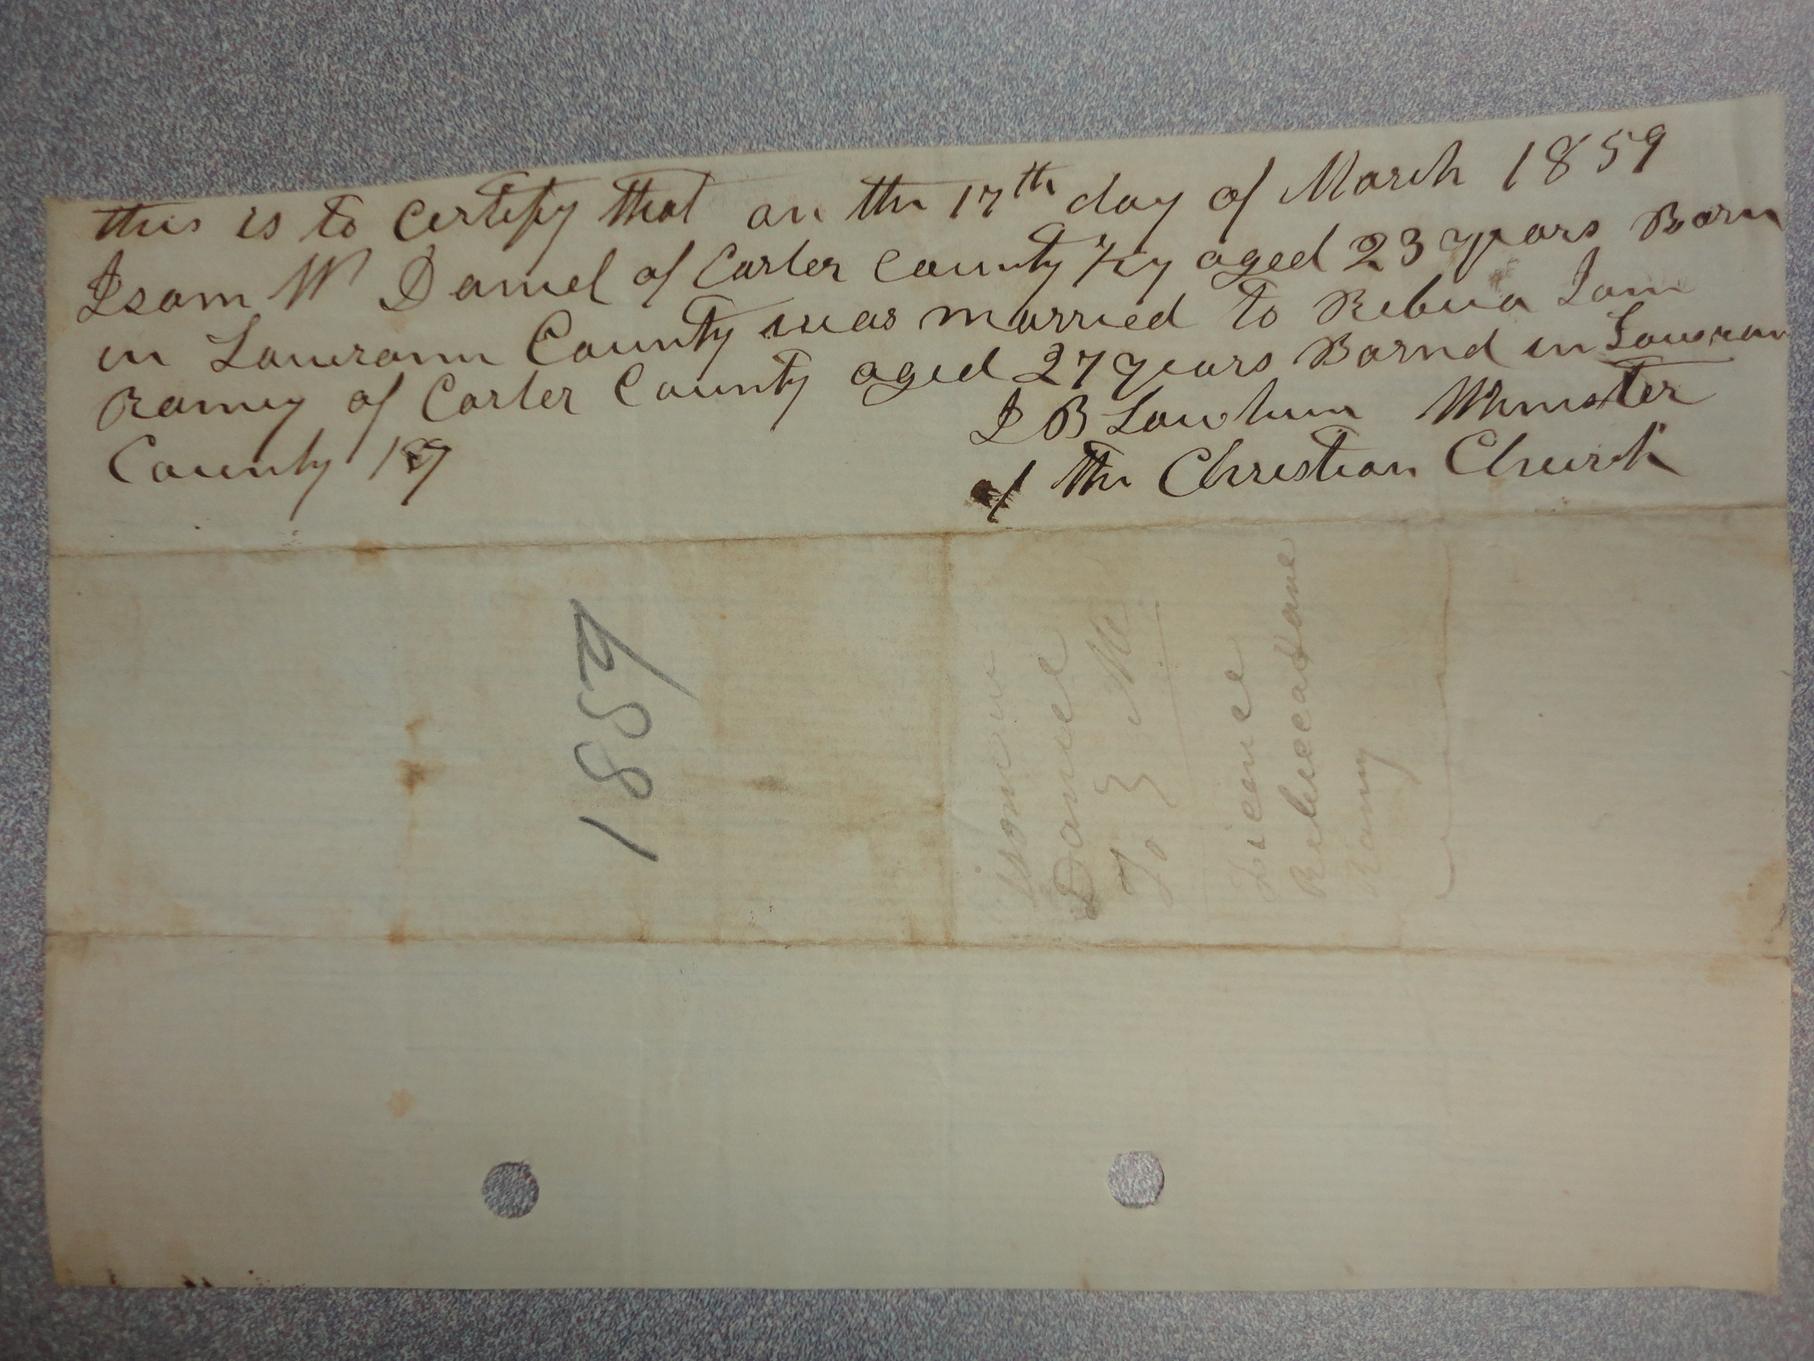 this is to certify that on the 17th day of March 1859
Isam W Daniel of Carter County Ky aged 23 years Born
in Lawrann County was married to Rebua Jane
Ramey of Carter County aged 27 years Barnd in Lawran
County Ky
J B Lawhun Minister
of the Christian Church
1859
isom w
Daniel
To }
Licence
Rebuecca Jane
Ramy